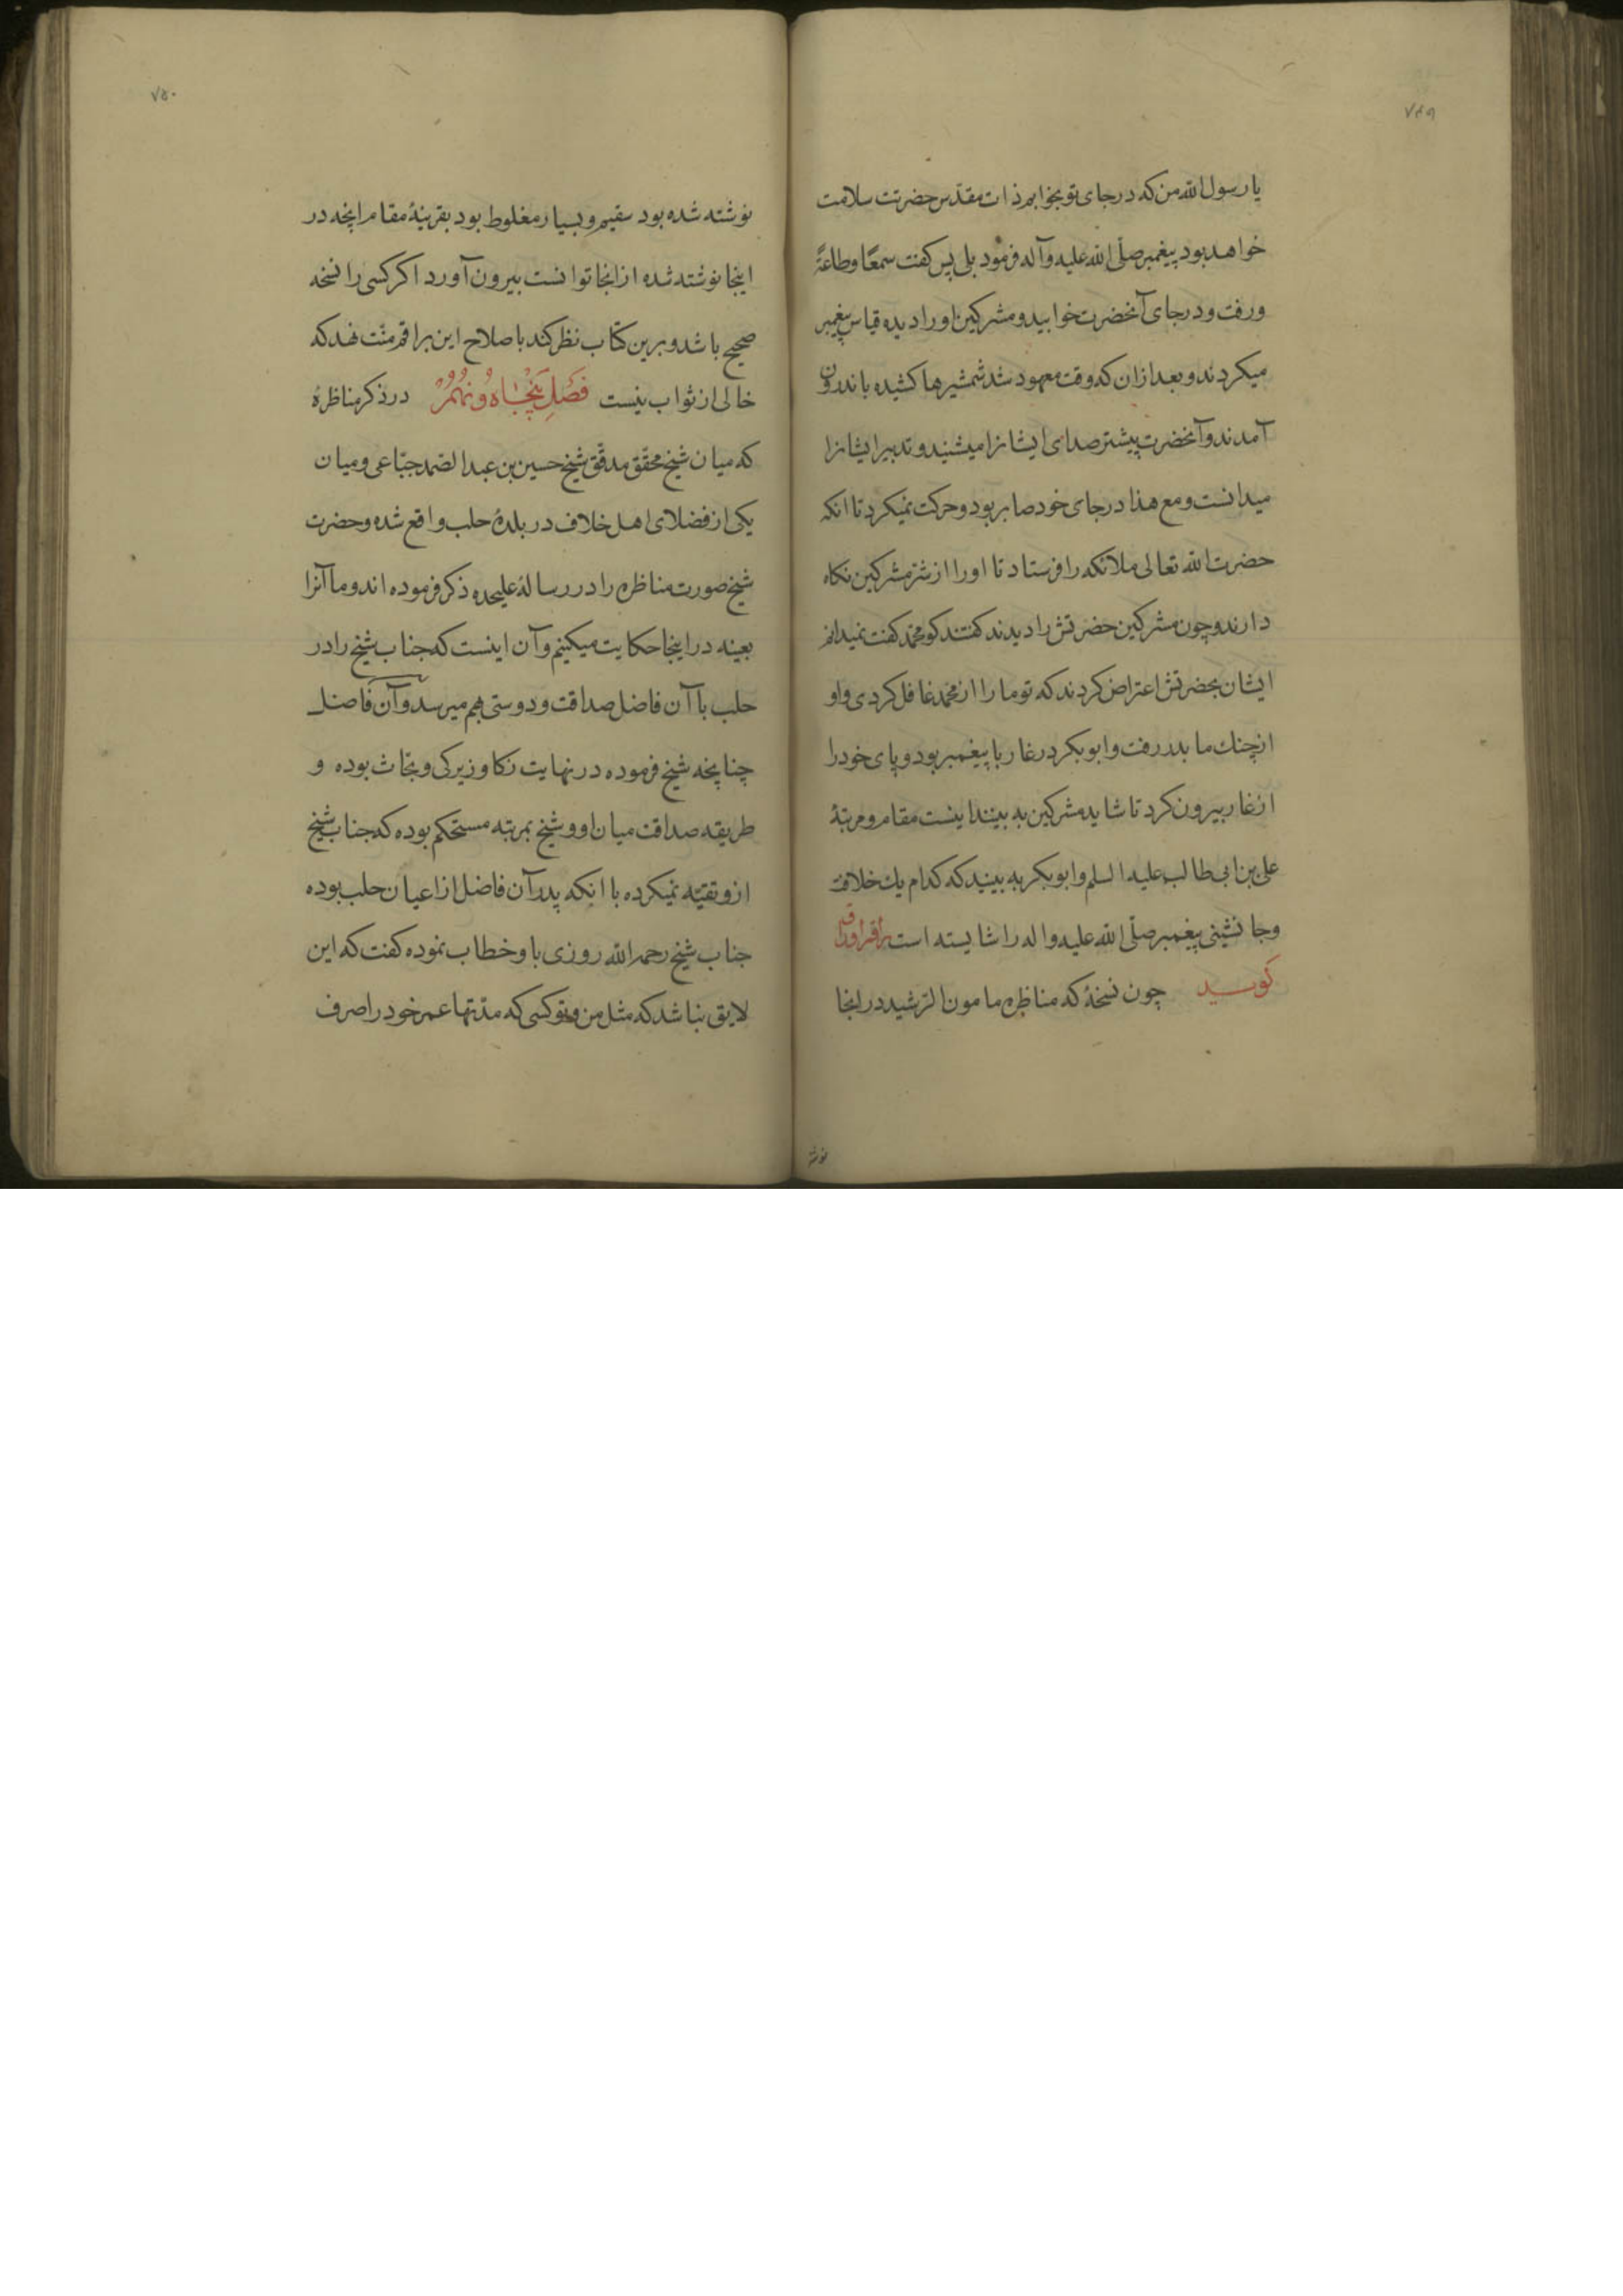 ۷۴۹
یا رسول الله من که در جای تو بخوابم ذات مقدس حضرتت سلامت
خواهد بود پیغمبر صلّی الله علیه وآله فرمود بلی پس کفت سمعًا وطاعةً
ورفت ودر جای آنحضرت خوابید ومشرکین او را دیده قیاس پیغمبر
میکردند وبعد ازان که وقت معهود شد شمشیرها کشیده باندرون
آمدند وآنحضرت پیشتر صدای ایشانرا میشنید وتدبیر ایشانرا
میدانست ومع هذا در جای خود صابر بود وحرکت نمیکرد تا انکه
حضرت الله تعالی ملائکه را فرستاد تا او را از شر مشرکین نکاه
دارند وچون مشرکین حضرتش را دیدند کفتند کو محمد کفت نمیدانم
ایشان بحضرتش اعتراض کردند که تو ما را از محمد غافل کردی واو
از چنك ما بدر رفت وابوبکر در غار با پیغمبر بود وپای خود را
از غار بیرون کرد تا شاید مشرکین به بینند اینست مقام ومرتبهٔ
علی بن ابی طالب علیه السلم وابوبکر به بینید که کدام یك خلافت
وجانشینی پیغمبر صلّی الله علیه واله را شایسته است
کوید چون نسخهٔ که مناظرهٔ مامون الرّشید در انجا
نوشته
۷۵۰
نوشته شده بود سقیم وبسیار مغلوط بود بقرینهٔ مقام انچه در
اینجا نوشته شده از انجا توانست بیرون آورد اکر کسی را نسخه
صحیح باشد وبرین کتاب نظر کند باصلاح این براقم منّت نهد که
خالی از ثواب نیست فَصْلِ پَنْجاهُ ونُهُمْ در ذکر مناظرهٔ
که میان شیخ محقّق مدقّق شیخ حسین بن عبد الصّمد جبّاعی ومیان
یکی از فضلای اهل خلاف در بلدهٔ حلب واقع شده وحضرت
شیخ صورت مناظره را در رسالهٔ علیحده ذکر فرموده اند وما آنرا
بعینه در اینجا حکایت میکنیم وآن اینست که جناب شیخ را در
حلب با آن فاضل صداقت ودوستی بهم میرسد وآن فاضل
چنانچه شیخ فرموده در نهایت زکا وزیرکی وبحّاث بوده و
طریقه صداقت میان او وشیخ بمرتبه مستحکم بوده که جناب شیخ
ازو تقیّه نمیکرده با انکه پدر آن فاضل از اعیان حلب بوده
جناب شیخ رحمه الله روزی باو خطاب نموده کفت که این
لایق نباشد که مثل من وتو کسی که مدّتها عمر خود را صرف